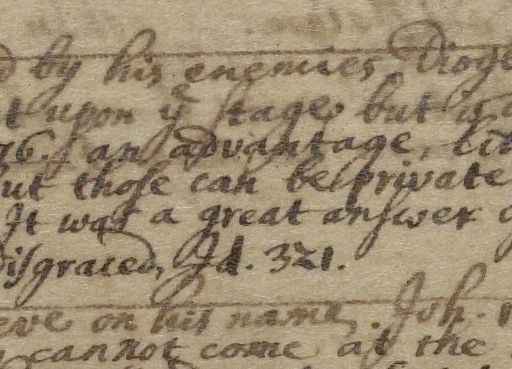 d by his enemies Dioge
t upon yͤ stage but is
76. an advantage, cit
ut those can be private
It was a great answer o
disgraced, Id. 321.
eve on his name. Joh.
cannot come at the